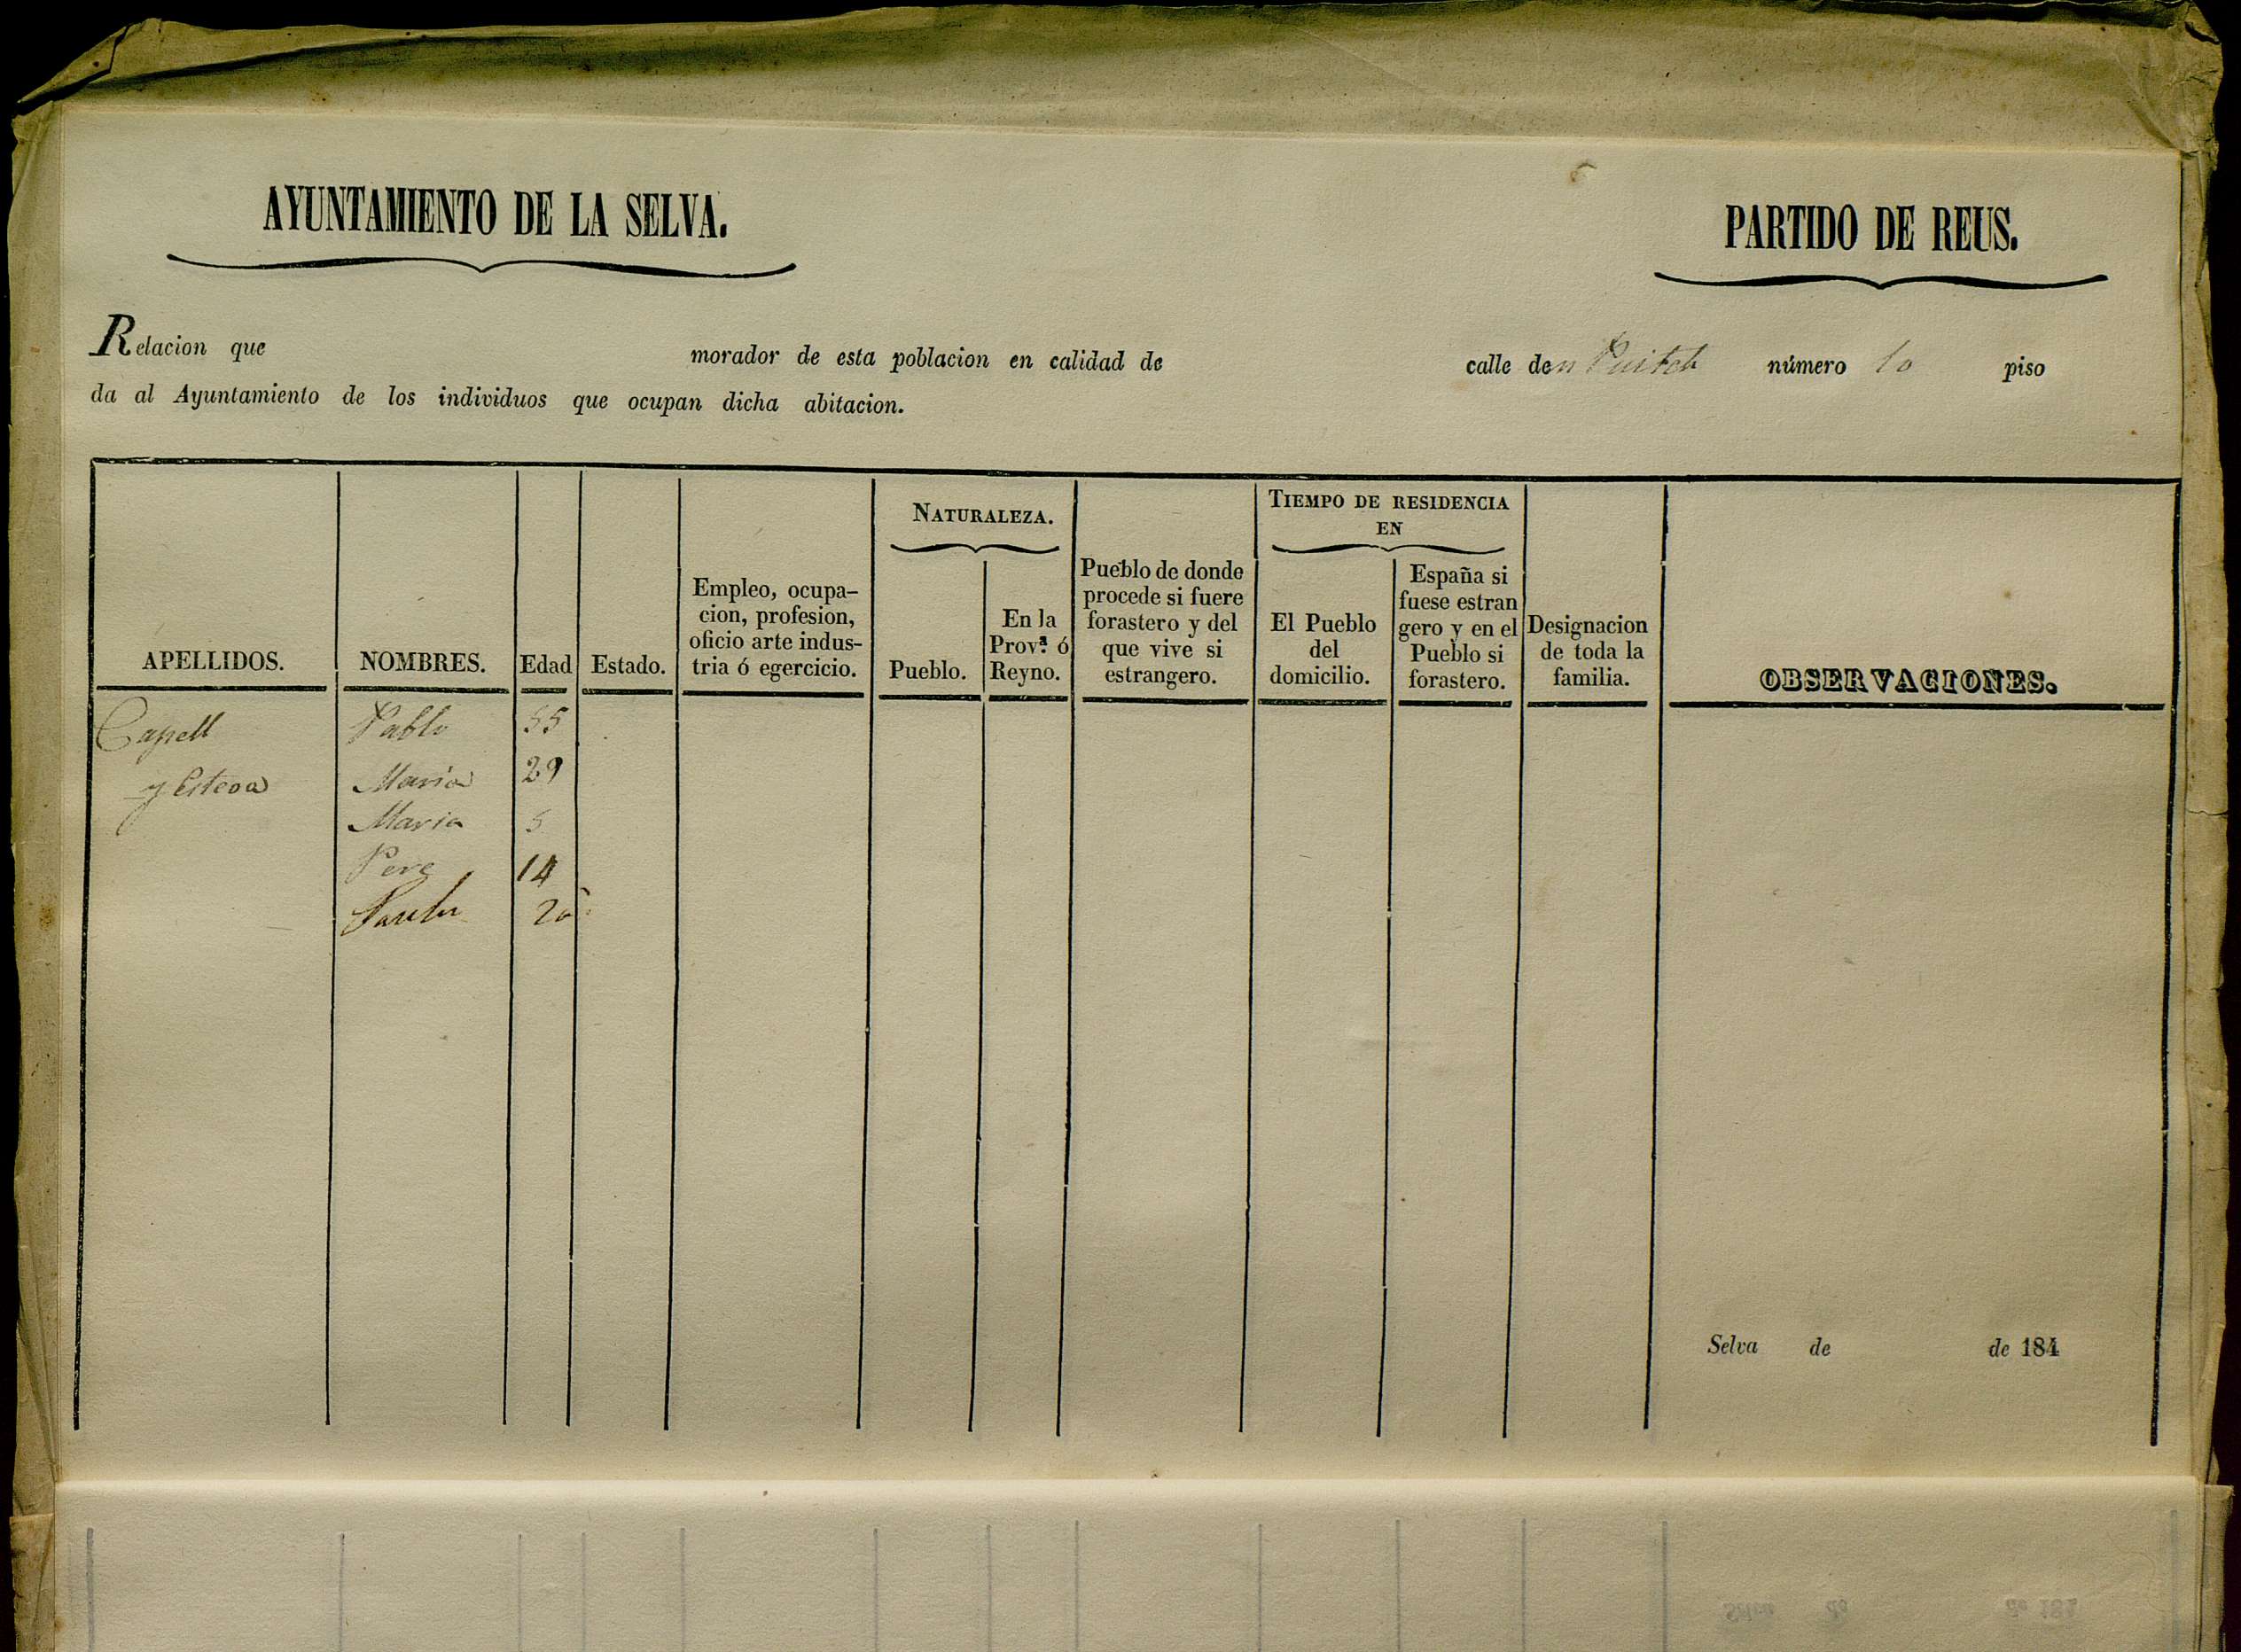 AYUNTAMIENTO DE LA SELVA.
PARTIDO DE REUS.
Relacion que morador de esta poblacion en calidad de calle den Puitch número 10 piso
da al Ayuntamiento de los individuos que ocupan dicha abitacion.
APELLIDOS.
NOMBRES.
Edad
Estado.
Empleo, ocupa-
cion, profesion,
oficio arte indus-
tria ó egercicio.
NATURALEZA.
Pueblo.
En la
Prov.ª ó
Reyno.
Pueblo de donde
procede si fuere
forastero y del
que vive si
estrangero.
TIEMPO DE RESIDENCIA
EN
El Pueblo
del
domicilio.
España si
fuese estran
gero y en el
Pueblo si
forastero.
Designacion
de toda la
familia.
OBSERVACIONES.
Capell Pablo 55
y Esteva Maria 29
Maria 5
Pere 14
Selva de de 184